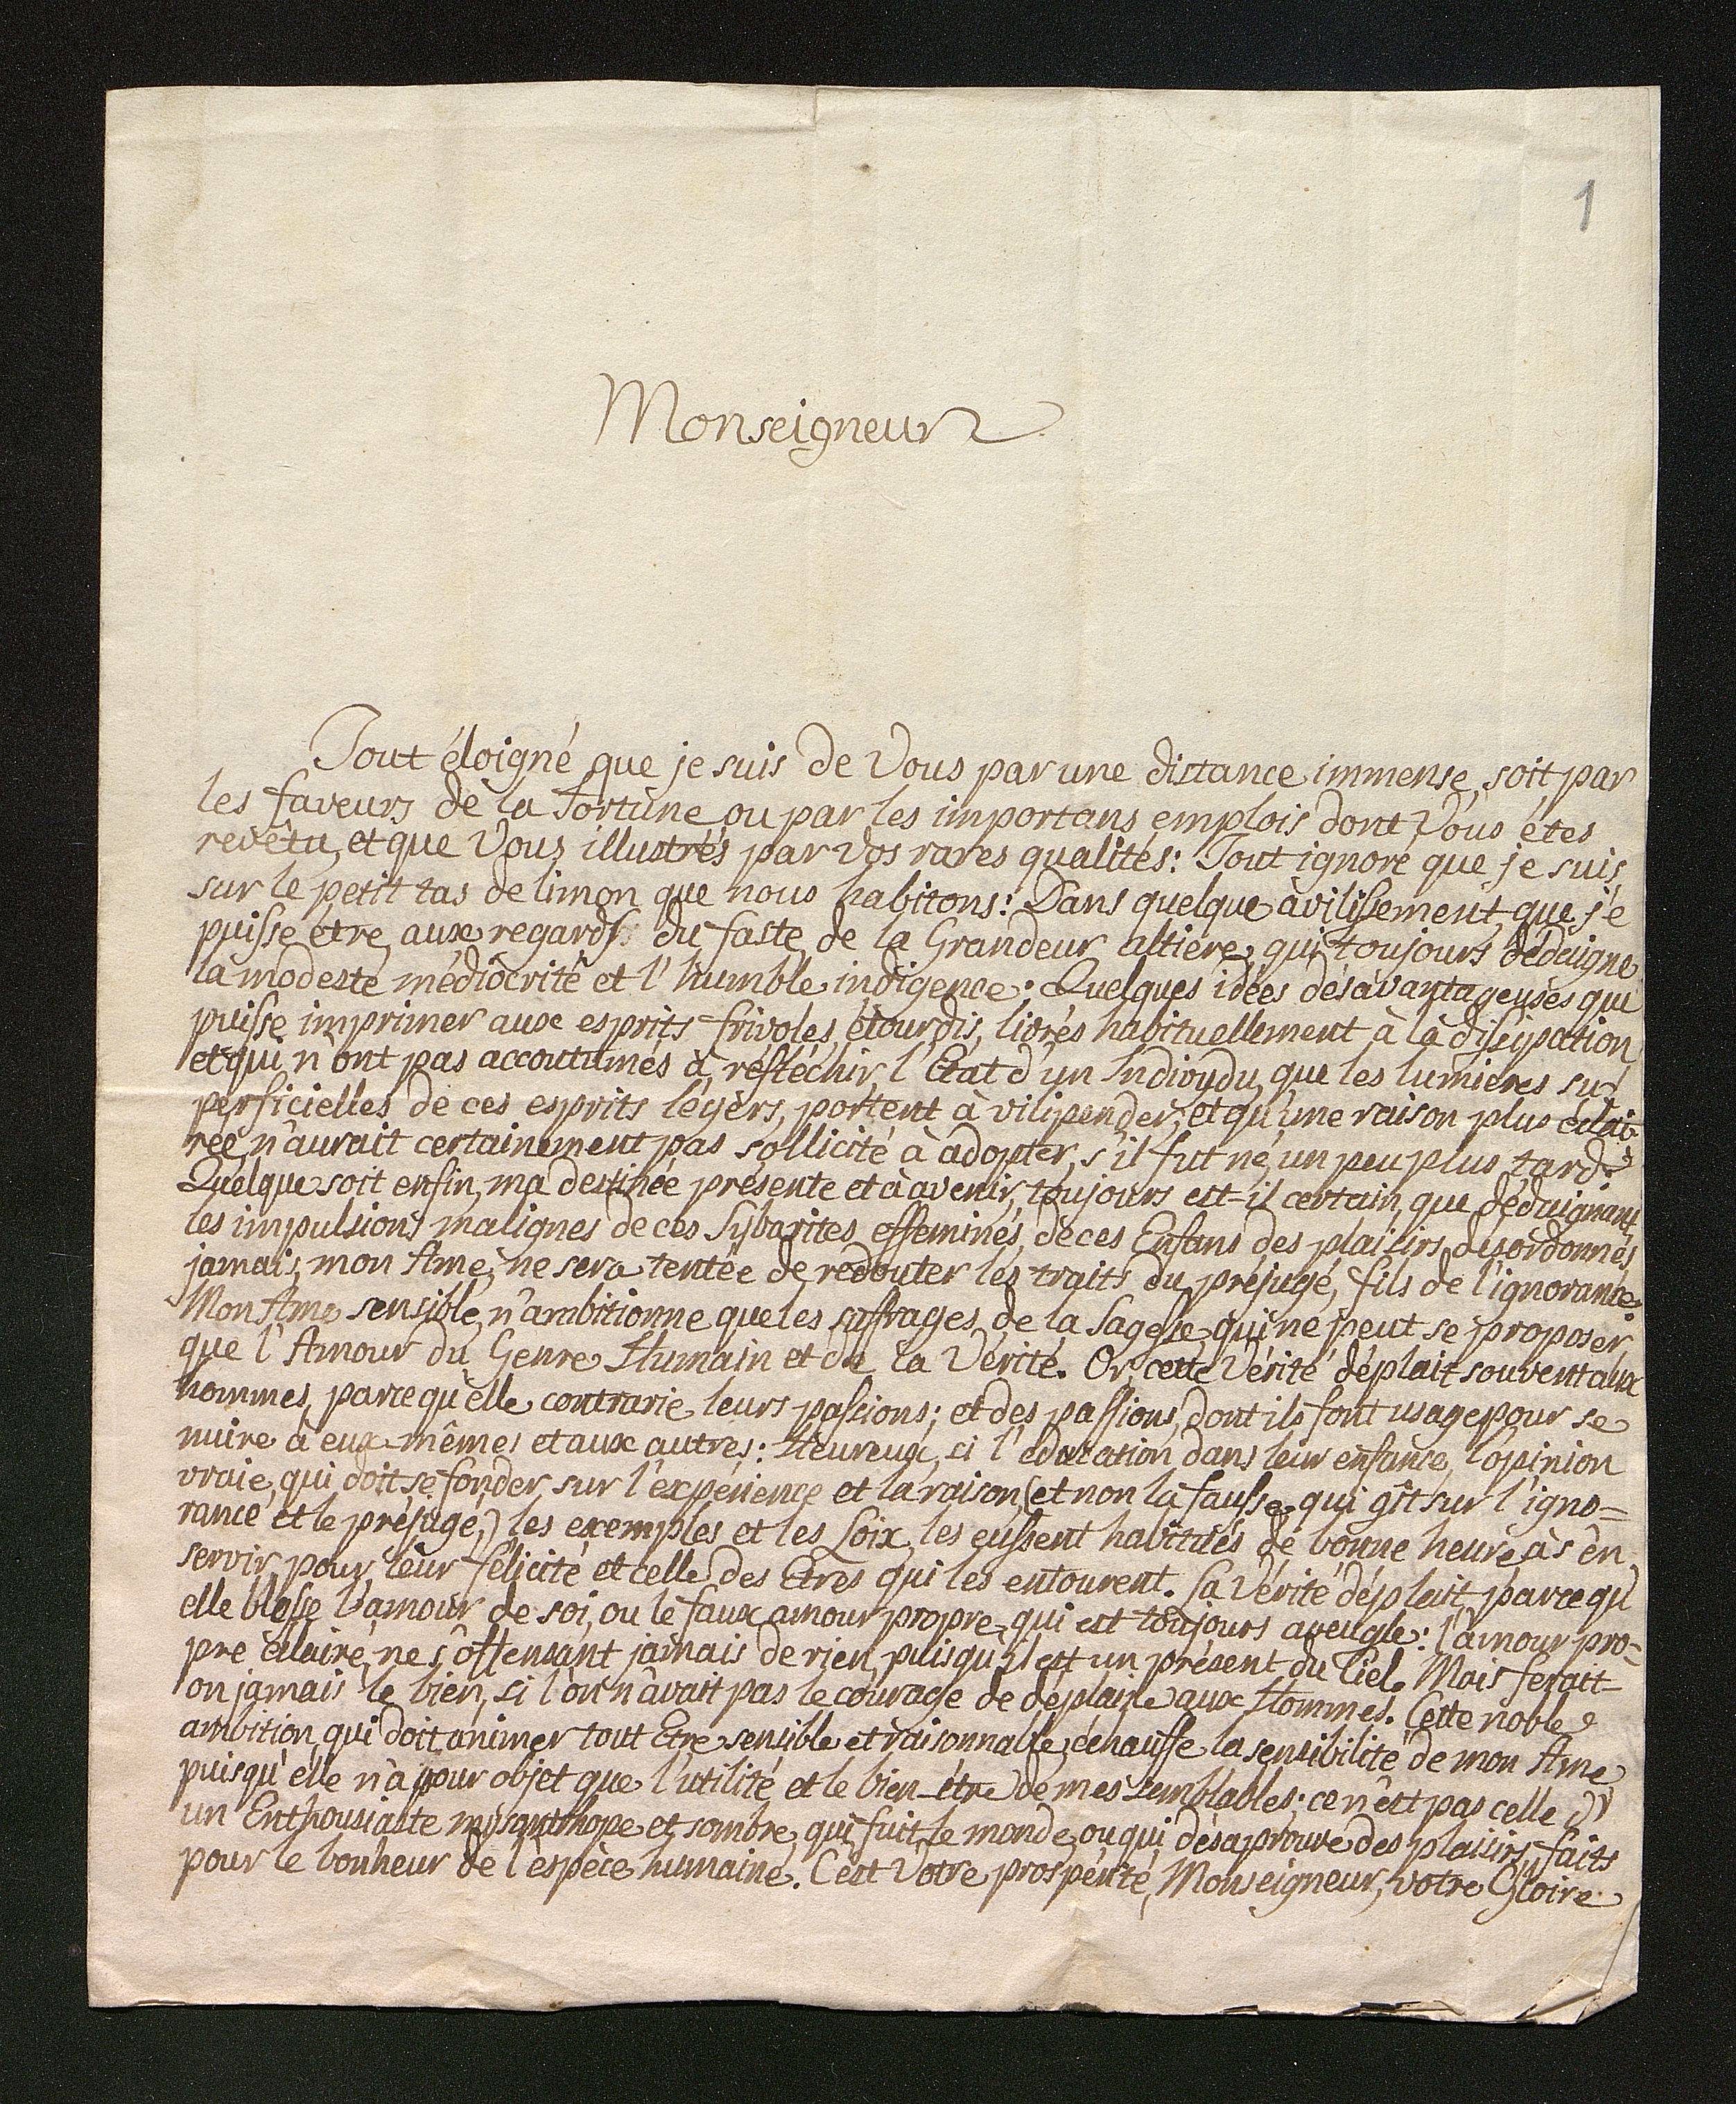 1
Monseigneur
Tout éloigné que je suis de Vous par une distance immense, soit par
les faveurs de la Fortune ou par les importans emplois dont Vous étes
revêtu, et que Vous illustrés par vos rares qualités: Tout ignoré que je suis
sur le petit tas de limon que nous habitons: Dans quelque avilissement que je
puisse être aux regards du faste de la Grandeur altiere, qui toujours dédaigne
la modeste médiocrité et l'humble indigence: Quelques idées désavantageuses que
puisse imprimer aux esprits frivoles, étourdis, livrés habituellement à la dissipation
et qui n'ont pas accoutumés à réfléchir, l'Etat d'un Individu, que les lumieres su-
perficielles de ces esprits légèrs, portent à vilipender; et qu'une raison plus éclai-
rée, n'aurait certainement pas sollicité à adopter, s'il fut né, un peu plus tard:
Quelque soit enfin, ma destinée présente et à avenir, toujours est-il certain, que dédaignant
les impulsions malignes de ces Sybarites effeminés, de ces Enfans des plaisirs desordonnés
jamais, mon Ame, ne sera tentée de redouter les traits du préjugé, fils de l'ignorance.
Mon Ame sensible, n'ambitionne que les suffrages de la Sagesse qui ne peut se proposer
que l'Amour du Genre Humain et de la Vérité. Or, cette Vérité déplait souvent aux
hommes, parce qu'elle contrarie leurs passions; et des passions, dont ils font usage pour se
nuire à eux-mêmes et aux autres: Heureux, si l'education dans leur enfance, l'opinion
vraie, qui doit se fonder sur l'expérience et la raison, (et non la fausse, qui gît sur l'igno=
rance et le préjugé,) les exemples et les Loix, les eussent habitués de bonne heure à s'en
servir, pour leur félicité et celle des Etres qui les entourent. La Vérité déplait, parce qu'
elle blesse l'amour de soi, ou le faux amour propre, qui est toujours aveugle: l'amour pro=
pre éclairé, ne s'offensant jamais de rien, puisqu'il est un présent du Ciel. Mais ferait-
on jamais le bien, si l'on n'avait pas le courage de déplaire aux Hommes. Cette noble
ambition, qui doit animer tout Etre sensible et raisonnable, échauffe la sensibilité de mon Ame
puisqu'elle n'a pour objet que l'utilité et le bien-être de mes semblables; ce n'est pas celle d'
un Enthousiaste misanthrope et sombre, qui fuit le monde, ou qui désaprouve des plaisirs, faits
pour le bonheur de l'espèce humaine. C'est Votre prospérité, Monseigneur, votre Gloire